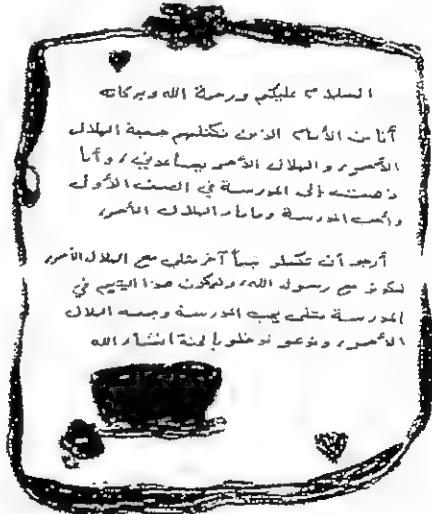 السلام عليكم ورحمة الله وبركاته
أنا من الأيتام الذين تكفلهم جمعية الهلال
الأحمر، والهلال الأحمر يساعدني، وأنا
ذهبت إلى المدرسة في الصف الأول
وأحب المدرسة وماما والهلال الأحمر
أرجو أن تكفلو يتيماً آخر مثلي مع الهلال الأحمر
لتكونو مع رسول الله، وليكون هذا اليتيم في
المدرسة مثلي يحب المدرسة ويحب الهلال
الأحمر، وندعو تدخلو الجنة إنشاء الله